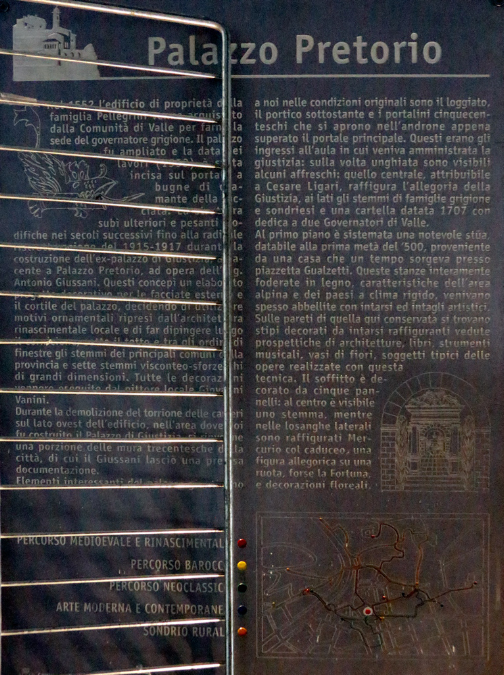 Palazzo Pretorio
l'edificio di proprietà
famiglia Pellegrini
dalla Comunità di Valle per
sede del governatore grigione. Il
fu ampliato e la data
incisa sul
bugne di
mante della
subì ulteriori e pesanti
difiche nei secoli successivi fino alla
del 1915-1917
costruzione dell'ex-palazzo di Giustizia
cente a Palazzo Pretorio, ad opera
Antonio Giussani. Questi concepì un
per le facciate
il cortile del palazzo, decidendo di
motivi ornamentali ripresi
rinascimentale locale e di far dipingere
finestre gli stemmi dei principali comuni
provincia e sette stemmi visconteo-sforze
di grandi dimensioni. Tutte le
Vanini.
Durante la demolizione del torrione delle
sul lato ovest dell'edificio, nell'area dove
fu costruito il Palazzo di Giustizia
una porzione delle mura trecentesche
città, di cui il Giussani lasciò una
documentazione.
Elementi interessanti del
a noi nelle condizioni originali sono il loggiato,
il portico sottostante e i portalini cinquecen-
teschi che si aprono nell'androne appena
superato il portale principale. Questi erano gli
ingressi all'aula in cui veniva amministrata la
giustizia: sulla volta unghiata sono visibili
alcuni affreschi: quello centrale, attribuibile
a Cesare Ligari, raffigura l'allegoria della
Giustizia, ai lati gli stemmi di famiglie grigione
e sondriesi e una cartella datata 1707 con
dedica a due Governatori di Valle.
Al primo piano è sistemata una notevole stüa,
databile alla prima metà del '500, proveniente
da una casa che un tempo sorgeva presso
piazzetta Gualzetti. Queste stanze interamente
foderate in legno, caratteristiche dell'area
alpina e dei paesi a clima rigido, venivano
spesso abbellite con intarsi ed intagli artistici.
Sulle pareti di quella qui conservata si trovano
stipi decorati da intarsi raffiguranti vedute
prospettiche di architetture, libri, strumenti
musicali, vasi di fiori, soggetti tipici delle
opere realizzate con questa
tecnica. Il soffitto è de-
corato da cinque pan-
nelli: al centro è visibile
uno stemma, mentre
nelle losanghe laterali
sono raffigurati Mer-
curio col caduceo, una
figura allegorica su una
ruota, forse la Fortuna,
e decorazioni floreali.
PERCORSO MEDIOEVALE E RINASCIMENTAL
PERCORSO BAROCC
PERCORSO NEOCLASSIC
ARTE MODERNA E CONTEMPORANE
SONDRIO RURAL